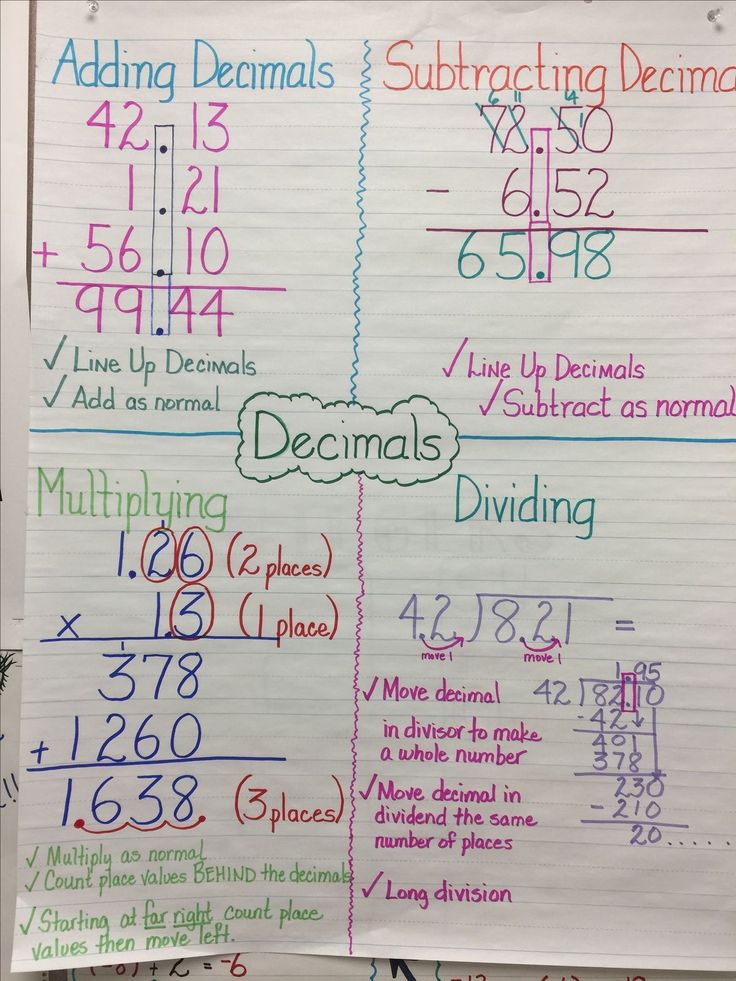 Adding Decimals
42.13
1.21
+ 56.10
99.44
✓ Line Up Decimals
✓ Add as normal
Subtracting Decima
6 11 14 1
72.50
- 6.52
65.98
✓ Line Up Decimals
✓ Subtract as normal
Decimals
Multiplying
1
1.26 (2 places)
x 1.3 (1 place)
1
378
+ 1260
1.638. (3 places)
✓ Multiply as normal
✓ Count place values BEHIND the decimals
✓ Starting at far right count place
values then move left.
Dividing
4.2 8.21 =
move 1 move 1
✓ Move decimal
in divisor to make
a whole number
✓ Move decimal in
dividend the same
number of places
✓ Long division
1.95
42 82.10
-42
401
378
230
-210
20......
+ 2 = -6